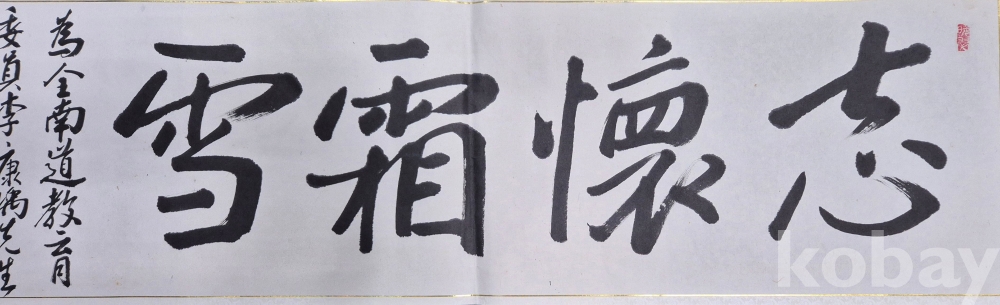 志懷霜雪
為全南道教育
委員李康満先生
kobay